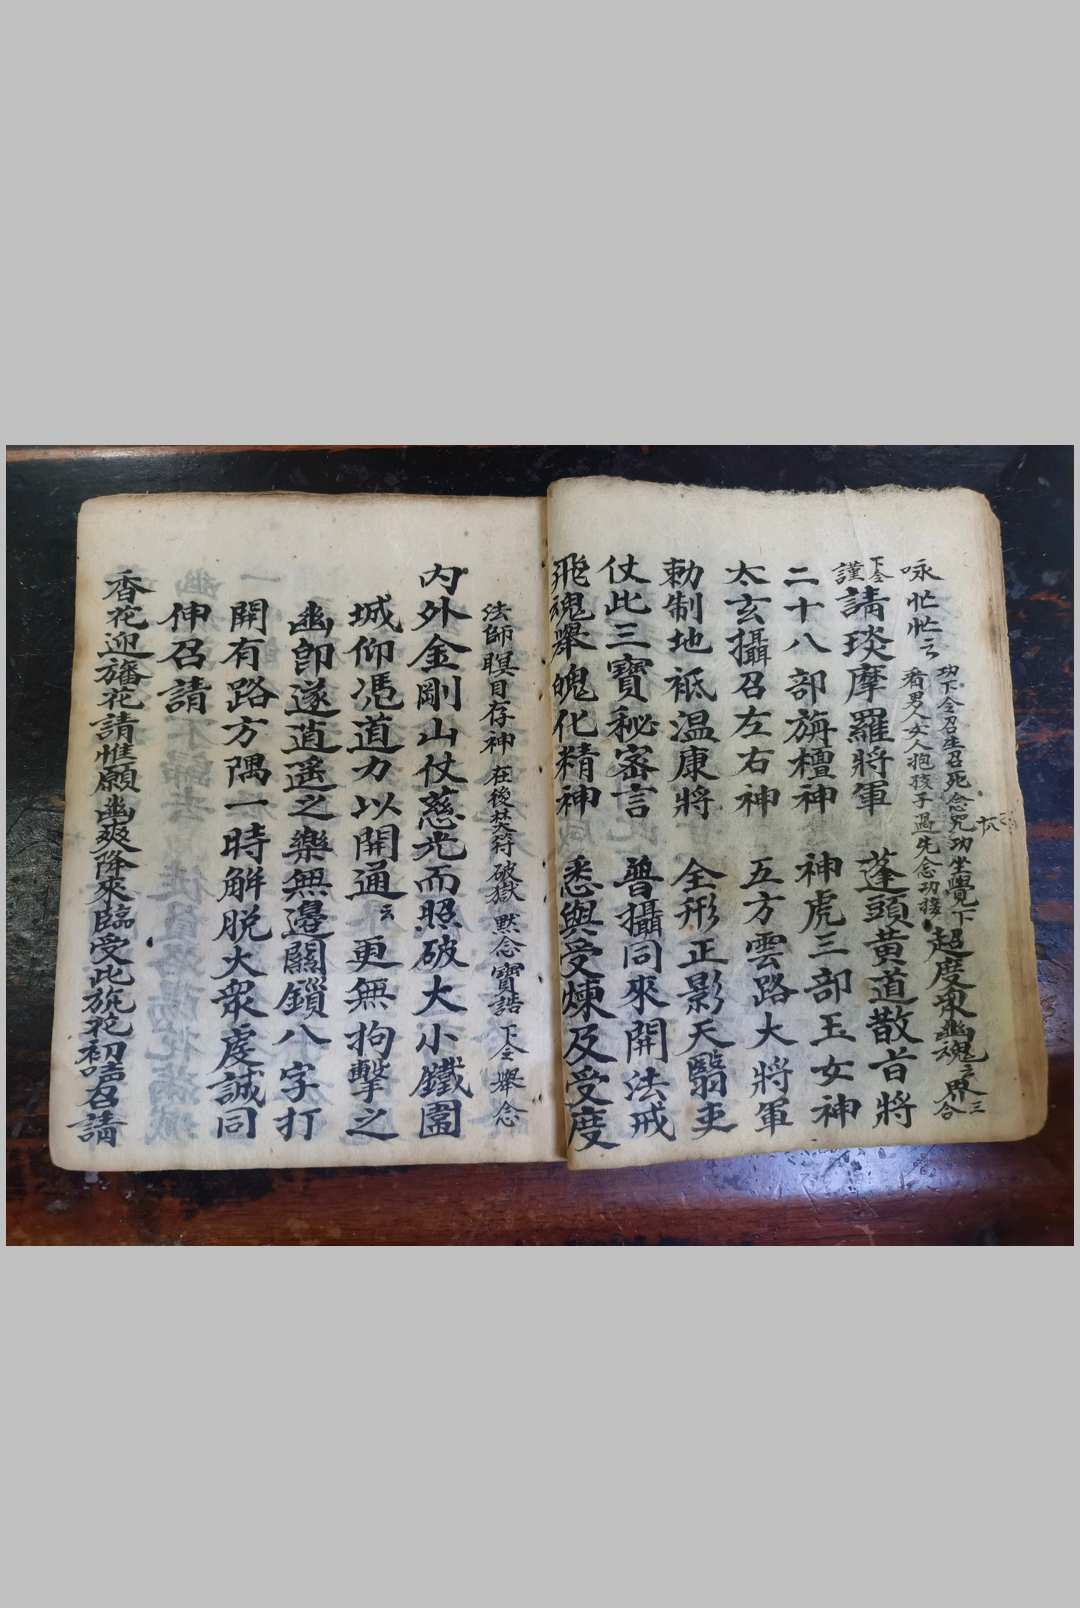 咏忙忙云 功下令召生召死念咒功坐覺下
看男人女人抱孩子過先念功接 超度眾幽魂云三界合
下令謹請琰摩羅將軍 蓬頭黃道散首將
二十八部旃檀神 神虎三部玉女神
太玄攝召左右神 五方雲路大將軍
勅制地祗溫康將 全形正影天醫吏
仗此三寶秘密言 普攝同來開法戒
飛魂舉魄化精神 悉與受煉及受度
法師瞑目存神 在後焚符破獄 默念寶誥 下令舉念
內外金剛山仗慈光而照破大小鐵圍
城仰馮道力以開通云更無拘擊之
幽即遂逍遙之樂無邊關鎖八字打
開有路方隅一時解脫大衆虔誠同
伸召請
香花迎旛花請惟願幽爽降來臨受此旐花初啨召請